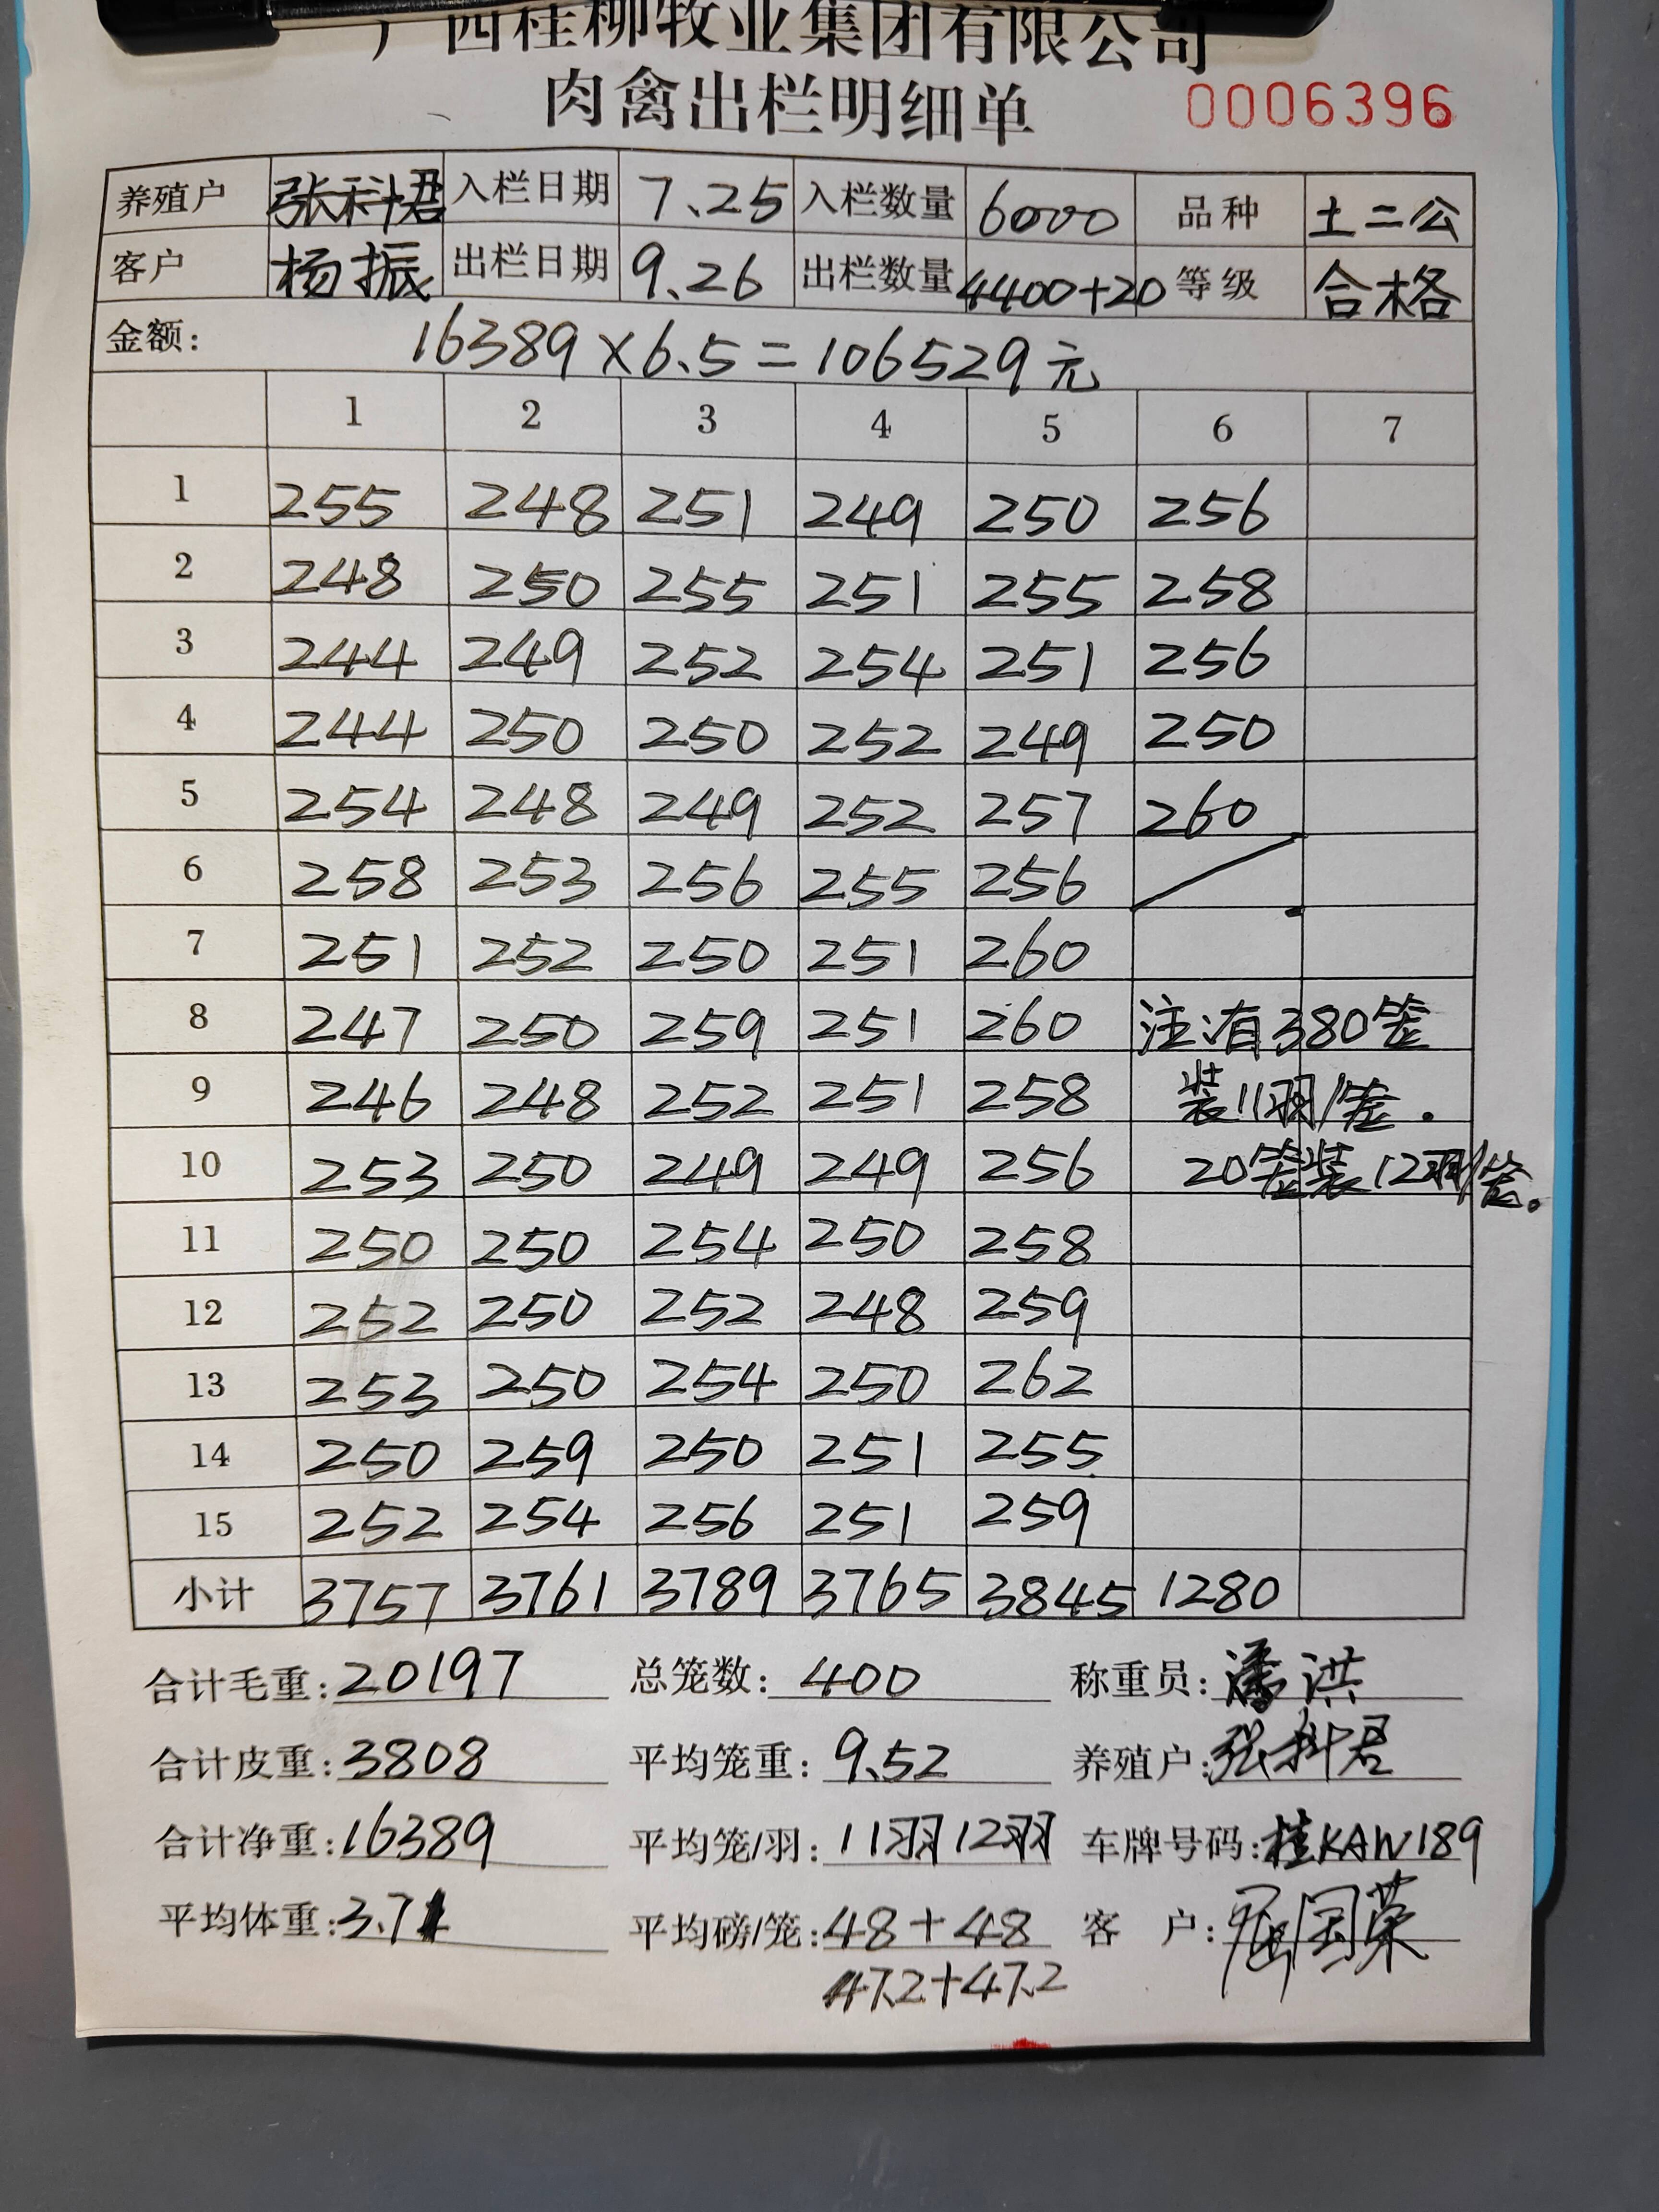 广西桂柳牧业集团有限公司
肉禽出栏明细单 0006396
养殖户 张科君 入栏日期 7.25 入栏数量 6000 品种 土二公
客户 杨振 出栏日期 9.26 出栏数量 4400+20 等级 合格
金额: 16389×6.5=106529元
1 2 3 4 5 6 7
1 255 248 251 249 250 256
2 248 250 255 251 255 258
3 244 249 252 254 251 256
4 244 250 250 252 249 250
5 254 248 249 252 257 260
6 258 253 256 255 256
7 251 252 250 251 260
8 247 250 259 251 260 注:有380笼
9 246 248 252 251 258 装11羽/笼.
10 253 250 249 249 256 20笼装12羽/笼。
11 250 250 254 250 258
12 252 250 252 248 259
13 253 250 254 250 262
14 250 259 250 251 255
15 252 254 256 251 259
小计 3757 3761 3789 3765 3845 1280
合计毛重:20197 总笼数:400 称重员:潘洪
合计皮重:3808 平均笼重:9.52 养殖户:张科君
合计净重:16389 平均笼/羽:11羽12羽 车牌号码:桂KAW189
平均体重:3.71 平均磅/笼:48+48 客 户:屈国荣
47.2+47.2